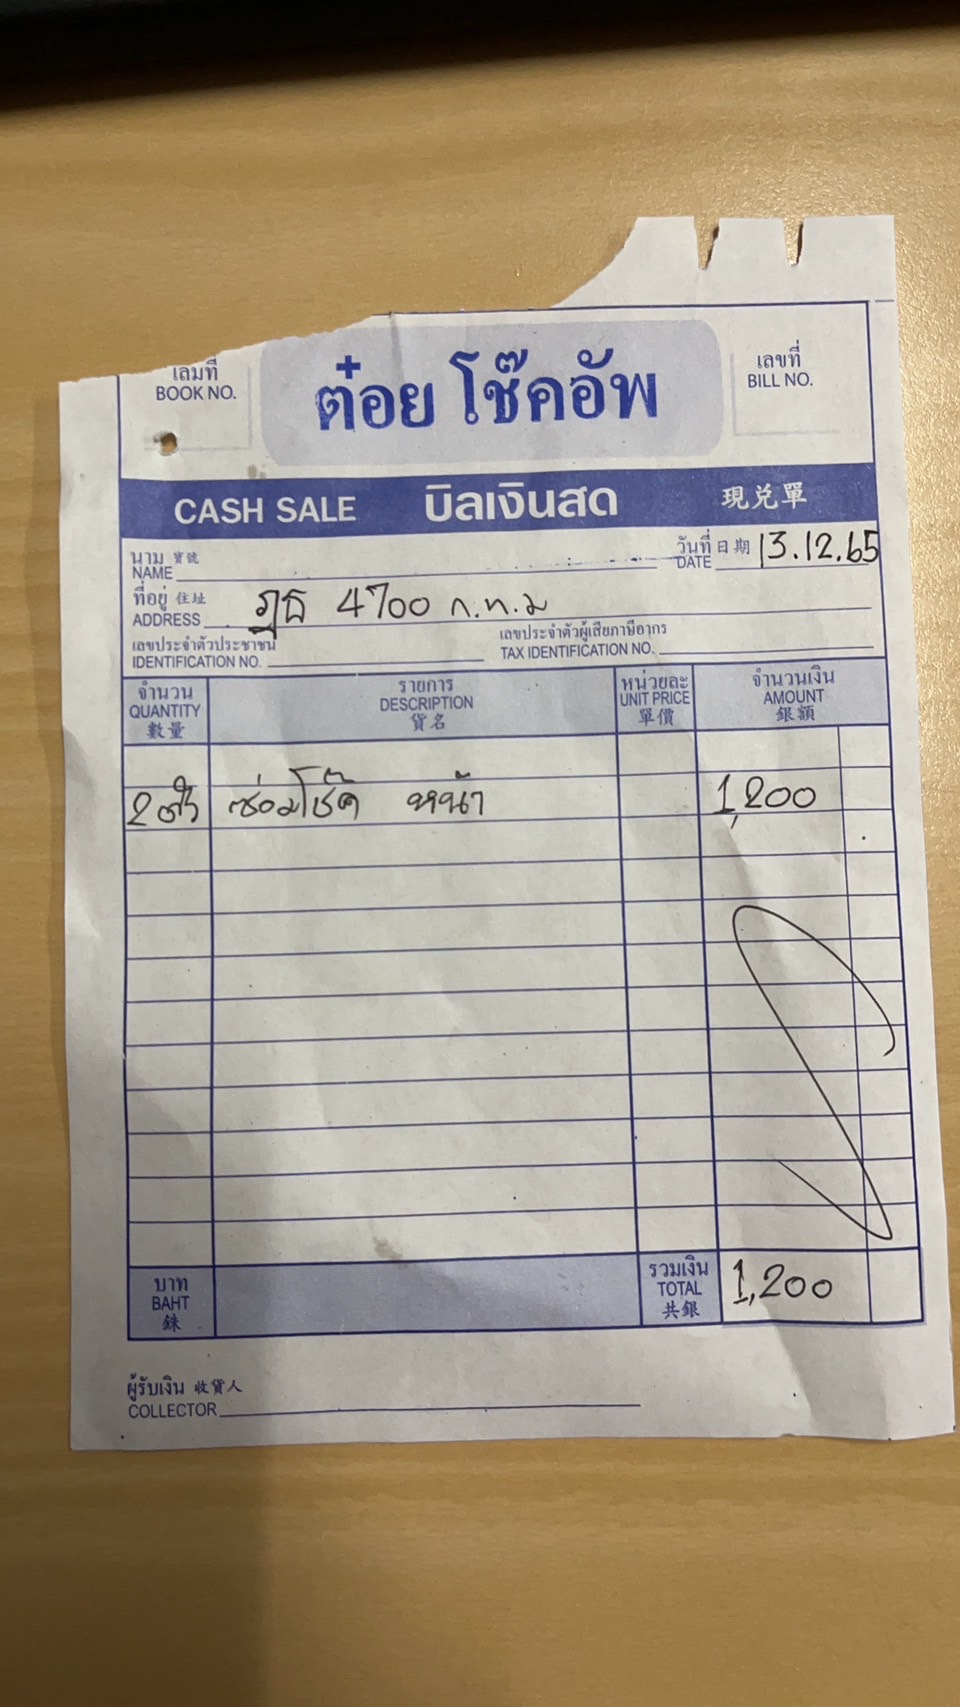 เล่มที่
BOOK NO.
ต๋อย โช๊คอัพ
เลขที่
BILL NO.
CASH SALE บิลเงินสด 現兌單
นาม 寶號
NAME
วันที่ 日期
DATE 13.12.65
ที่อยู่ 住址
ADDRESS ฎธ 4700 ก.ท.ม
เลขประจำตัวประชาชน
IDENTIFICATION NO.
เลขประจำตัวผู้เสียภาษีอากร
TAX IDENTIFICATION NO.
จำนวน
QUANTITY
數量
รายการ
DESCRIPTION
貨名
หน่วยละ
UNIT PRICE
單價
จำนวนเงิน
AMOUNT
銀額
2 ตัว ซ่อมโช๊ค หน้า 1,200
บาท
BAHT
銖
รวมเงิน
TOTAL
共銀
1,200
ผู้รับเงิน 收貨人
COLLECTOR